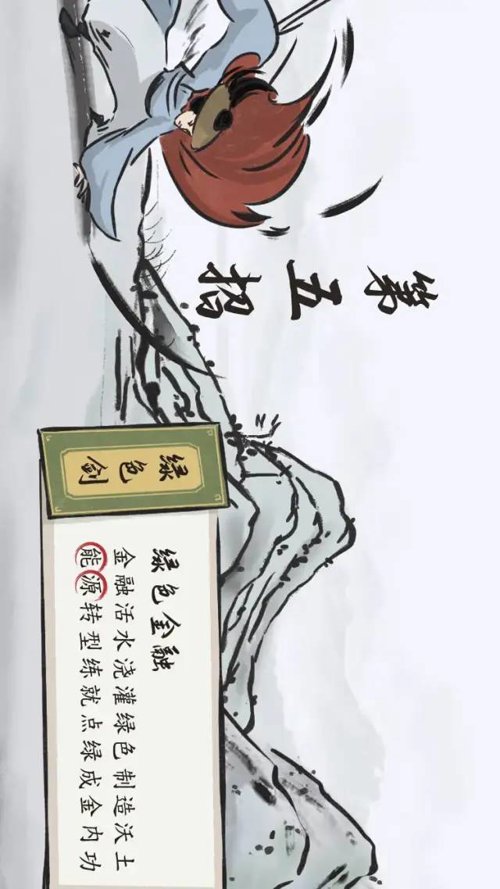 第五招
绿色剑
绿色金融
金融活水浇灌绿色制造沃土
能源转型练就点绿成金内功